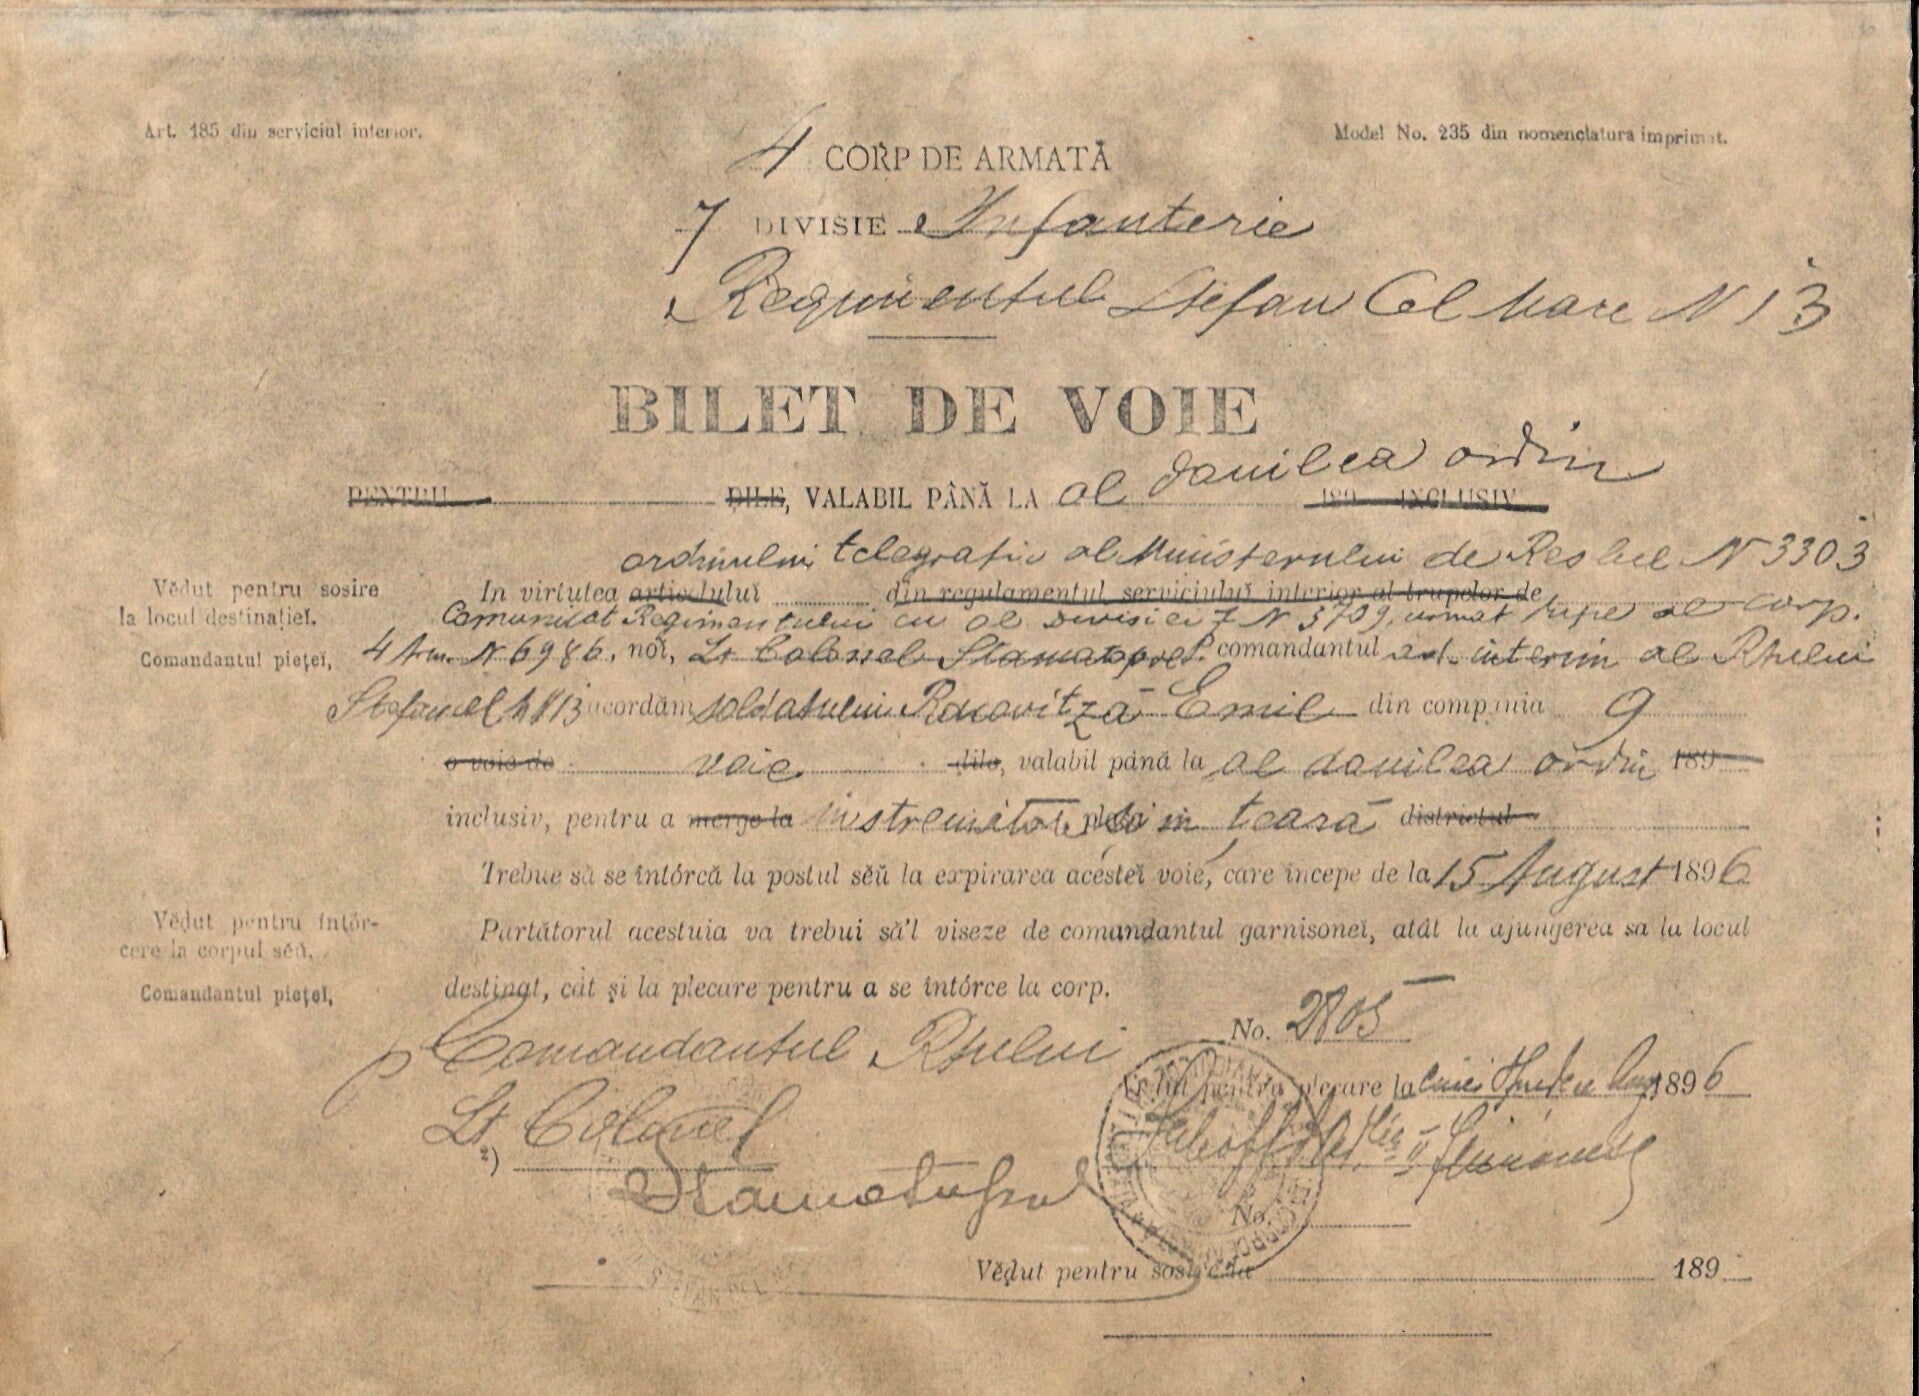 Art. 185 din serviciul interior.
Model No. 235 din nomenclatura imprimat.
4 CORP DE ARMATĂ
7 DIVISIE Infanterie
Regimentul Stefan Cel Mare N 13
BILET DE VOIE
PENTRU DILE, VALABIL PÂNĂ LA al douilea ordin 189 INCLUSIV
ordinului telegrafic al Ministerului de Resbel N 3303
In virtutea articolului din regulamentul serviciului interior al trupelor de
Comunicat Regimentului cu al Divisiei 7 N 3709, urmat al corp.
4 Arm. N 6986, noi, Lt Colonel comandantul interim al Rtului
acordăm soldatului Racovitză Emil din compania 9
o voie de voie dile, valabil până la al douilea ordin 189
inclusiv, pentru a merge la in teară districtul
Trebue să se întórcă la postul sĕŭ la expirarea acesteĭ voie, care începe de la 15 August 1896
Purtătorul acestuia va trebui să'l viseze de comandantul garnisoneĭ, atât la ajungerea sa la locul
destinat, cât și la plecare pentru a se întórce la corp.
Vĕdut pentru sosire
la locul destinațieĭ.
Comandantul piețeĭ,
Vĕdut pentru întór-
cere la corpul sĕŭ.
Comandantul piețeĭ,
Comandantul Rtului
Lt Colonel
No. 2805
pentru plecare la 1896
No.
Vĕdut pentru sosirea 189